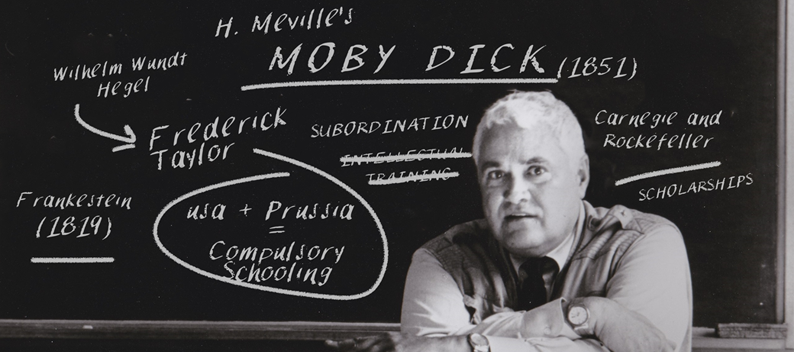 H. Meville's
MOBY DICK (1851)
Wilhelm Wundt
Hegel
Frederick
Taylor
SUBORDINATION
INTELLECTUAL
TRAINING
Carnegie and
Rockefeller
SCHOLARSHIPS
Frankestein
(1819)
usa + Prussia
=
Compulsory
Schooling